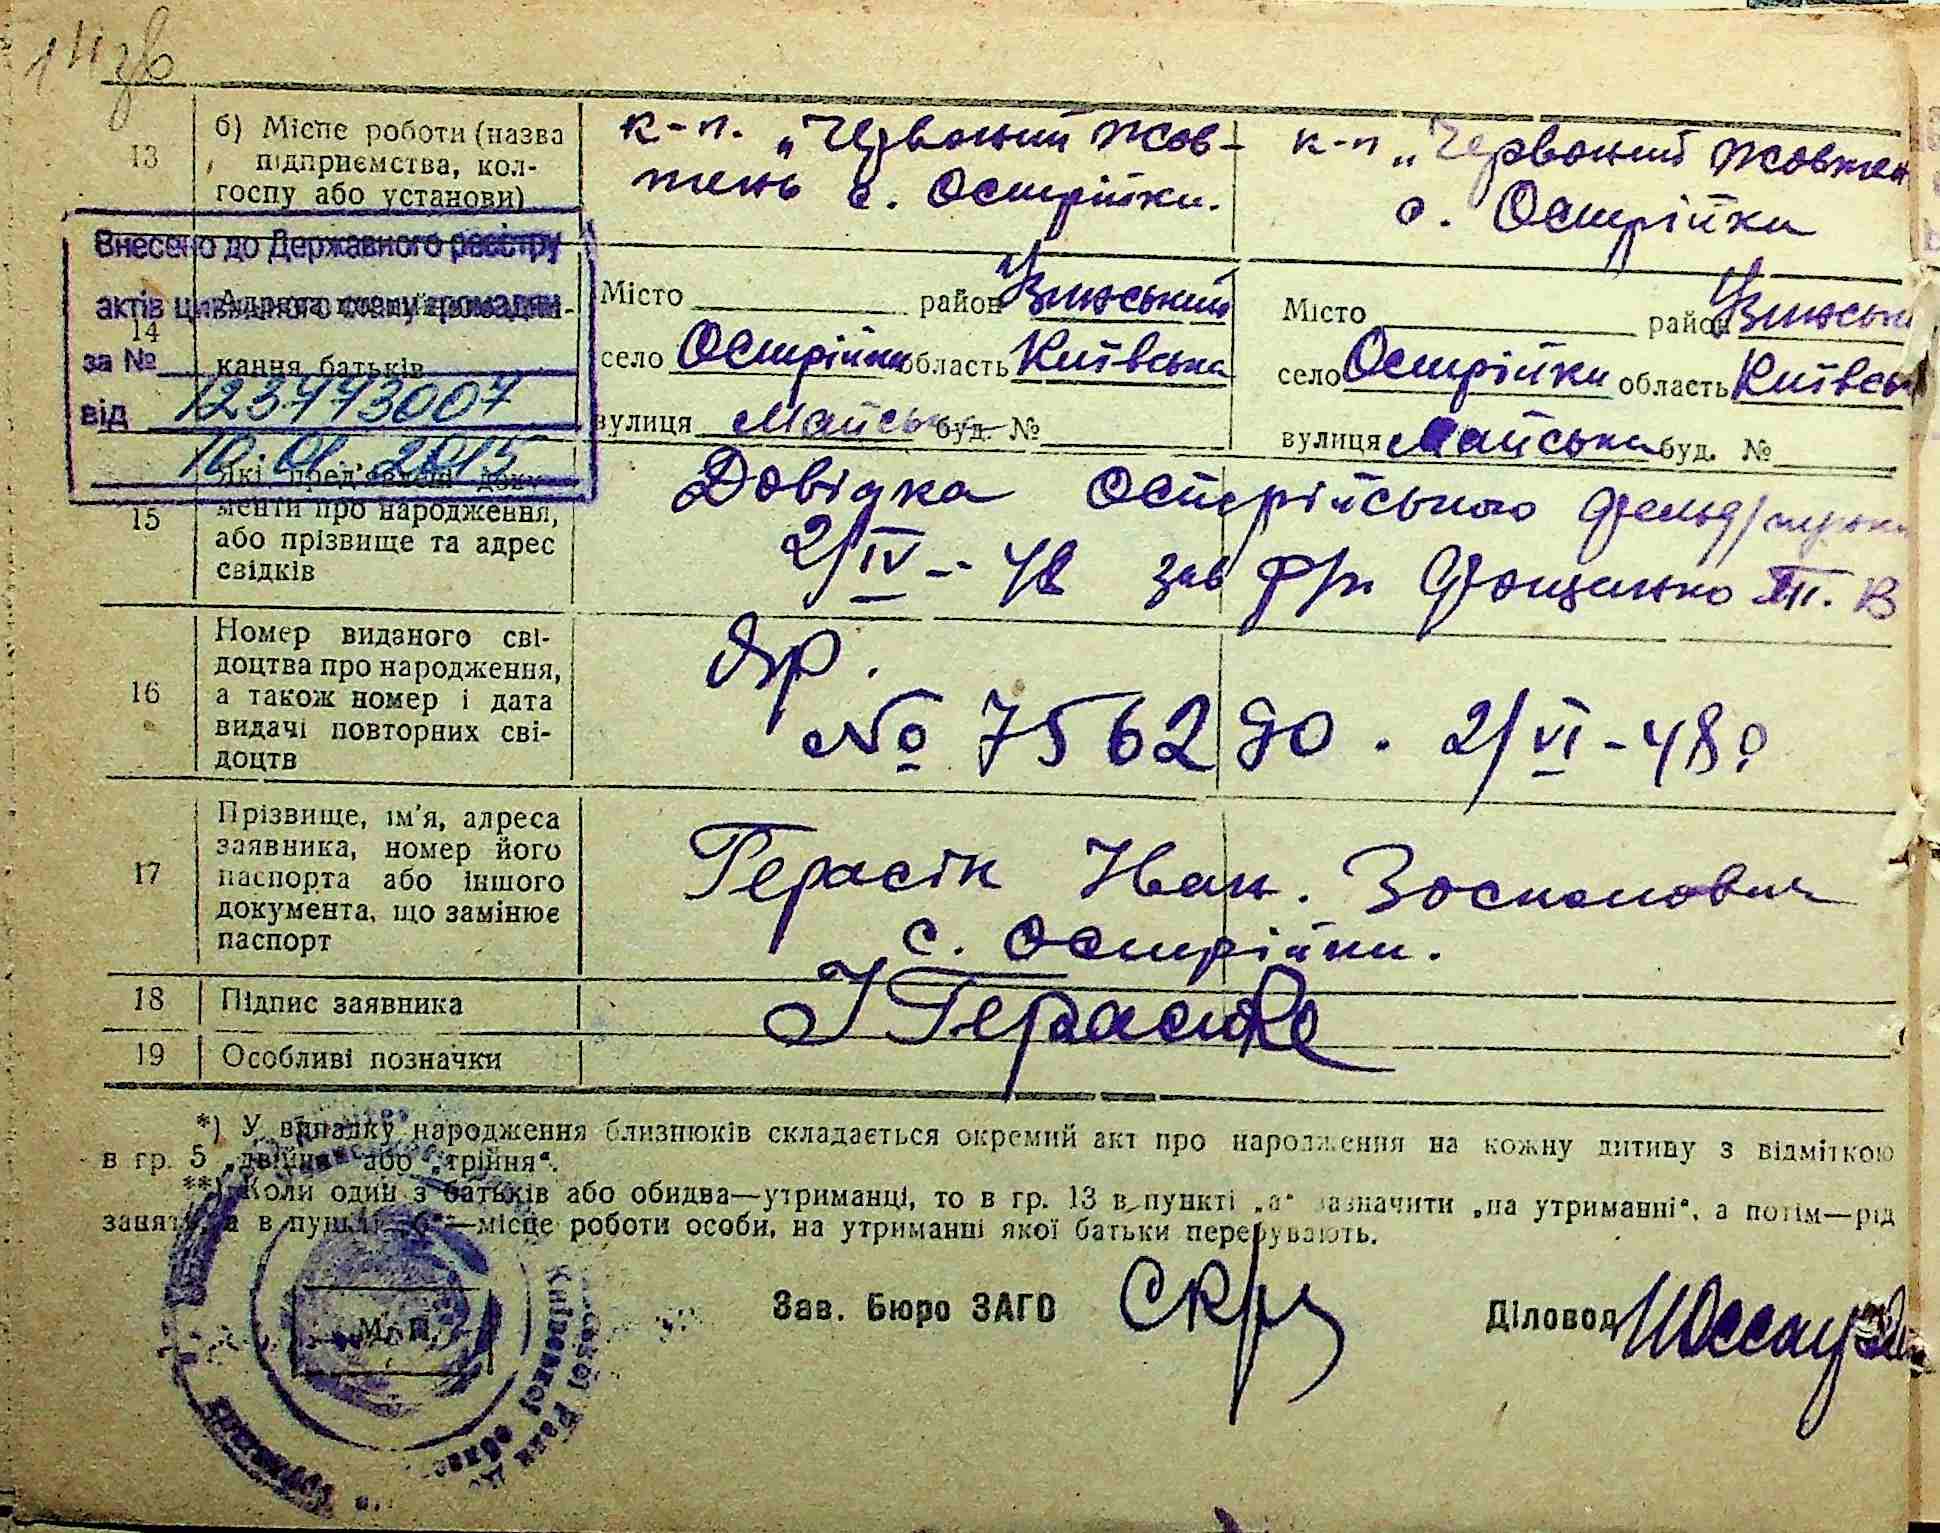 13
б) Місце роботи (назва
підприємства, кол-
госпу або установи)
к-п. „Червоний Жов-
тень с. Острійки.
к-п „Червоний Жовтен
с. Острійки
Внесено до Державного реєстру
актів цивільного стану громадян
за № 123773007
від 10.01.2015
14
кання батьків
Місто район Узинський
село Острійки область Київська
вулиця Майська буд. №
Місто район Узинськ
село Острійки область Київсь
вулиця Майська буд. №
15
Які пред'явлені доку-
менти про народження,
або прізвище та адрес
свідків
Довідка Острійського фельд/пункт
2/IV - 48 зав ф/п
16
Номер виданого сві-
доцтва про народження,
а також номер і дата
видачі повторних сві-
доцтв
№ 756280. 2/VI-48р
17
Прізвище, ім'я, адреса
заявника, номер його
паспорта або іншого
документа, що замінює
паспорт
Герасік Иван. Зосимович
с. Острійки.
18
Підпис заявника
19
Особливі позначки
*) У випадку народження близнюків складається окремий акт про народження на кожну дитину з відміткою
в гр. 5 „двійня" або „трійня".
**) Коли один з батьків або обидва—утриманці, то в гр. 13 в пункті „а" зазначити „на утриманні", а потім—рід
заняття, а в пункті „б"—місце роботи особи, на утриманні якої батьки перебувають.
М. П.
Київської
Зав. Бюро ЗАГО
Діловод